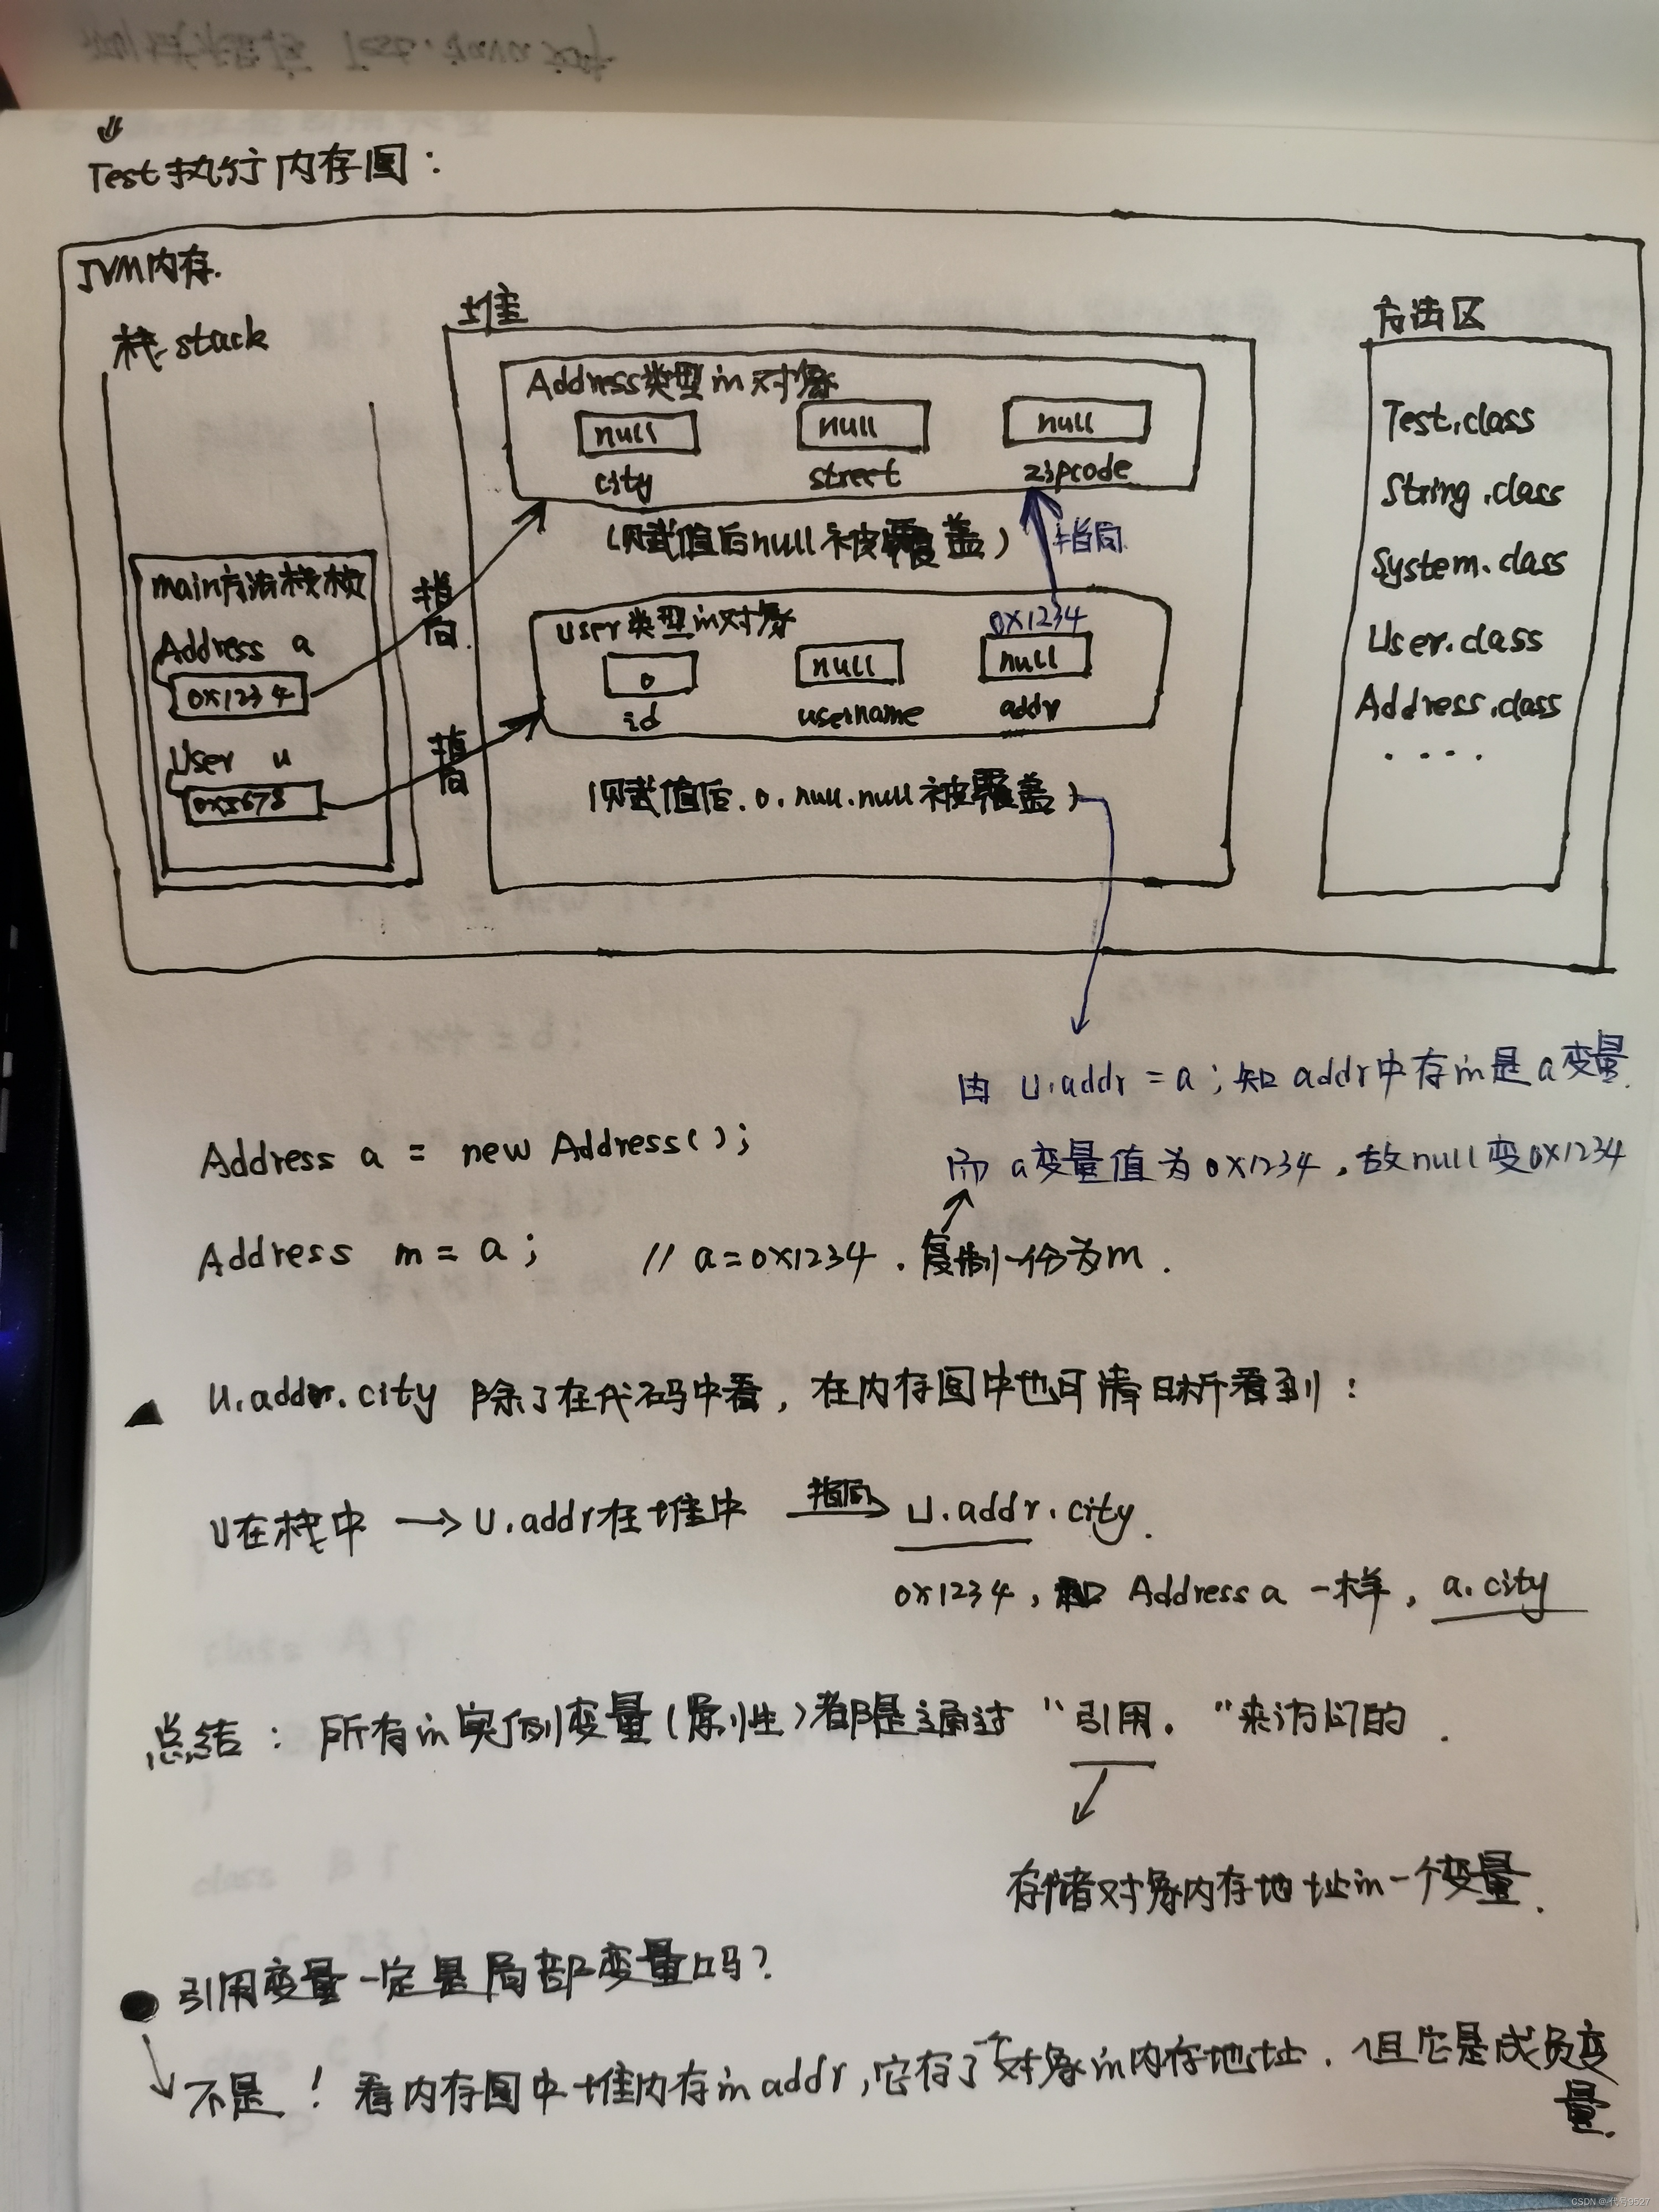 Test执行内存图：
JVM内存.
栈stack
堆
方法区
Address类型的对象
null
null
null
city
street
zipcode
(赋值后null被覆盖)
指向
main方法栈帧
Address a
0x1234
User u
0x5678
指向.
指向
User类型的对象
0x1234
0
null
null
id
username
addr
(赋值后.0.null.null被覆盖)
Test.class
String.class
System.class
User.class
Address.class
....
由 u.addr = a ; 知 addr中存的是a变量.
而 a变量值为0x1234，故null变0x1234
Address a = new Address();
Address m = a ; // a=0x1234 . 复制一份为m .
u.addr.city 除了在代码中看，在内存图中也可清晰看到：
u在栈中 → u.addr在堆中 指向→ u.addr.city.
0x1234，和 Address a 一样，a.city
总结：所有的实例变量(属性)都是通过"引用."来访问的 .
存储对象内存地址的一个变量.
引用变量一定是局部变量吗?
不是！看内存图中堆内存的addr,它存了一个对象的内存地址.但它是成员变
量.
CSDN @代号9527